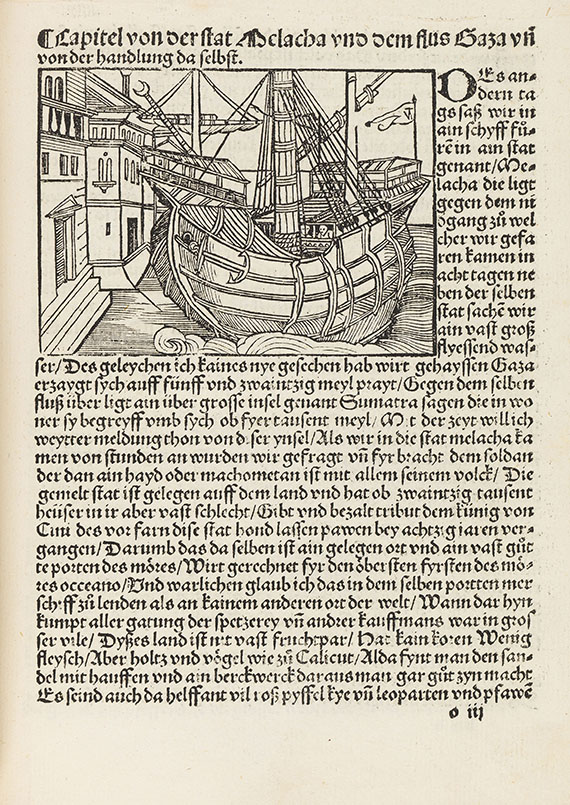 ¶Capitel von der stat Melacha vnd dem flus Gaza vñ
von der handlung da selbst.
DEs an-
dern ta
gs saß wir in
ain schyff fů-
rēin ain stat
genant/Me-
lacha die ligt
gegen dem ni
dgang zů wel
cher wir gefa
ren kamen in
acht tagen ne
ben der selben
stat sachē wir
ain vast groß
flyessend was-
ser/Des geleychen ich kaines nye gesechen hab wirt gehayssen Gaza
erzaygt sych auff fünff vnd zwaintzig meyl prayt/Gegen dem selben
fluß über ligt ain über grosse insel genant Sumatra sagen die in wo
ner sy begreyff vmb sych ob fyer tausent meyl/Mit der zeyt will ich
weytter meldung thon von diser ynsel/Als wir in die stat melacha ka
men von stunden an wurden wir gefragt vñ fyr bracht dem soldan
der dan ain hayd oder machometan ist mit allem seinem volck/Die
gemelt stat ist gelegen auff dem land vnd hat ob zwaintzig tausent
heüser in ir aber vast schlecht/Gibt vnd bezalt tribut dem künig von
Cini des vor farn dise stat hond lassen pawen bey achtzig jaren ver-
gangen/Darumb das da selben ist ain gelegen ort vnd ain vast gůt
te porten des möres/Wirt gerechnet fyr den öbersten fyrsten des mö-
res occeano/Vnd warlichen glaub ich das in dem selben portten mer
schyff zů lenden als an kainem anderen ort der welt/Wann dar hyn
kumpt aller gatung der spetzerey vñ andrer kauffmans war in gros
ser vile/Dyßes land ist nit vast fruchtpar/Hat kain koren Wenig
fleysch/Aber holtz vnd vögel wie zů Calicut/Alda fynt man den san-
del mit hauffen vnd ain berckwerck dar aus man gar gůt zyn macht
Es seind auch da helffant vil roß pyffel kye vñ leoparten vnd pfawē
o iij